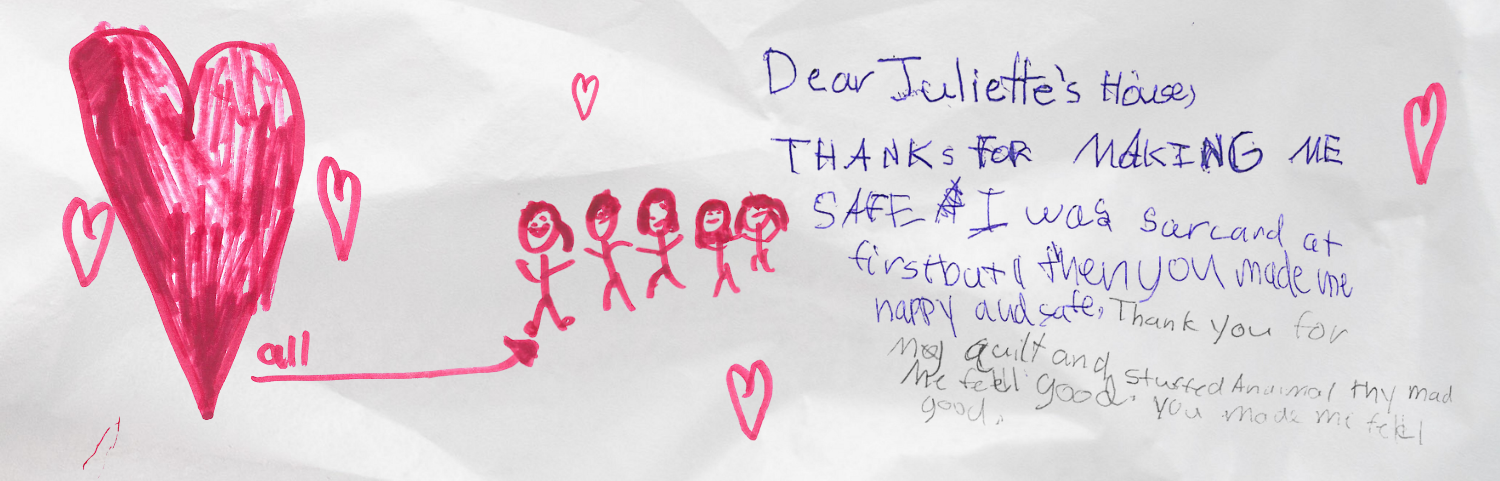 all
Dear Juliette's House,
THANKS FOR MAKING ME
SAFE I was sarcard at
first but then you made me
happy and safe. Thank you for
My quilt and stuffed Anaimal thy mad
Me feel good. You made me feel
good.